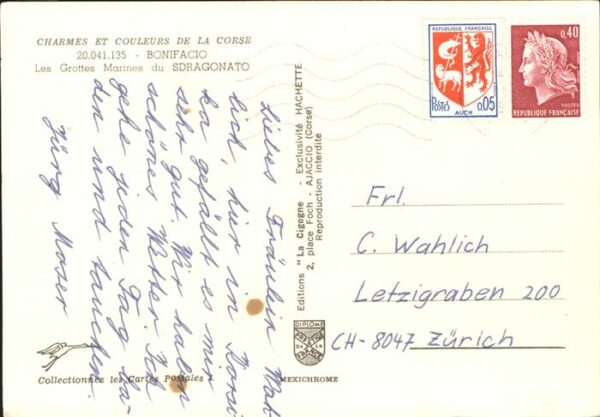 CHARMES ET COULEURS DE LA CORSE
20.041.135 - BONIFACIO
Les Grottes Marines du SDRAGONATO
Liebes Fräulein Wah-
lich, hier in Korsi-
ka gefällt es mir
sehr gut. Wir haben
schönes Wetter. Ich
gehe jeden Tag ba-
den und tauchen.
Jürg Moser
Editions "La Cigogne - Exclusivité HACHETTE
2, place Foch - AJACCIO (Corse)
Reproduction interdite
REPUBLIQUE FRANÇAISE
POSTES 0,05
AUCH
0,40
POSTES
REPUBLIQUE FRANÇAISE
Frl.
C. Wahlich
Letzigraben 200
CH-8047 Zürich
Collectionnez les Cartes Postales
MEXICHROME